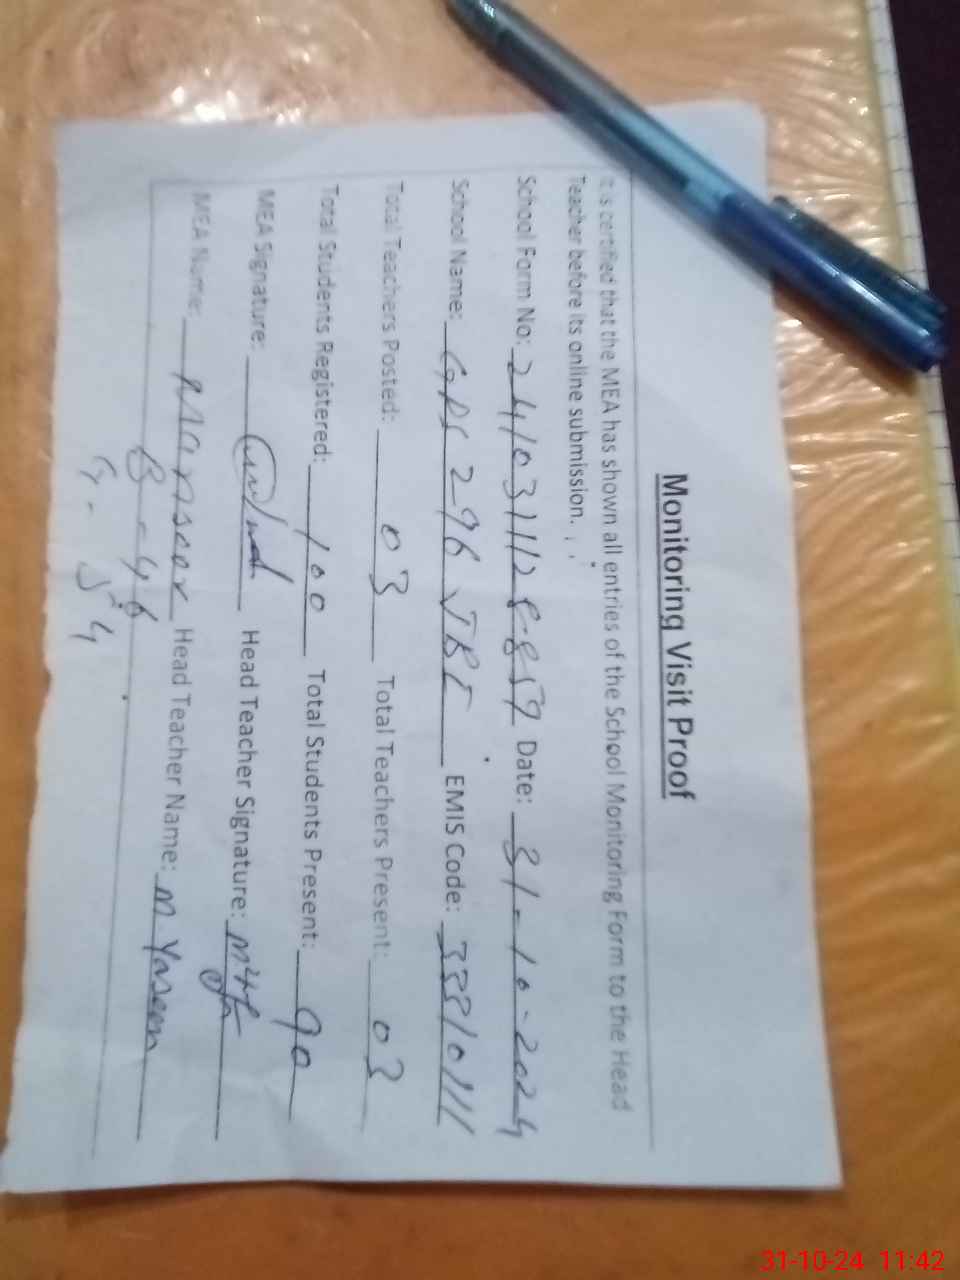 Monitoring Visit Proof
It is certified that the MEA has shown all entries of the School Monitoring Form to the Head
Teacher before its online submission.
School Form No: Date: 31-10-2024
School Name: GPS 296 EMIS Code:
Total Teachers Posted: 03 Total Teachers Present: 03
Total Students Registered: 100 Total Students Present: 90
MEA Signature: Head Teacher Signature:
MEA Name: Mansoor Head Teacher Name: M. Yaseen
B-46
G-54
31-10-24 11:42